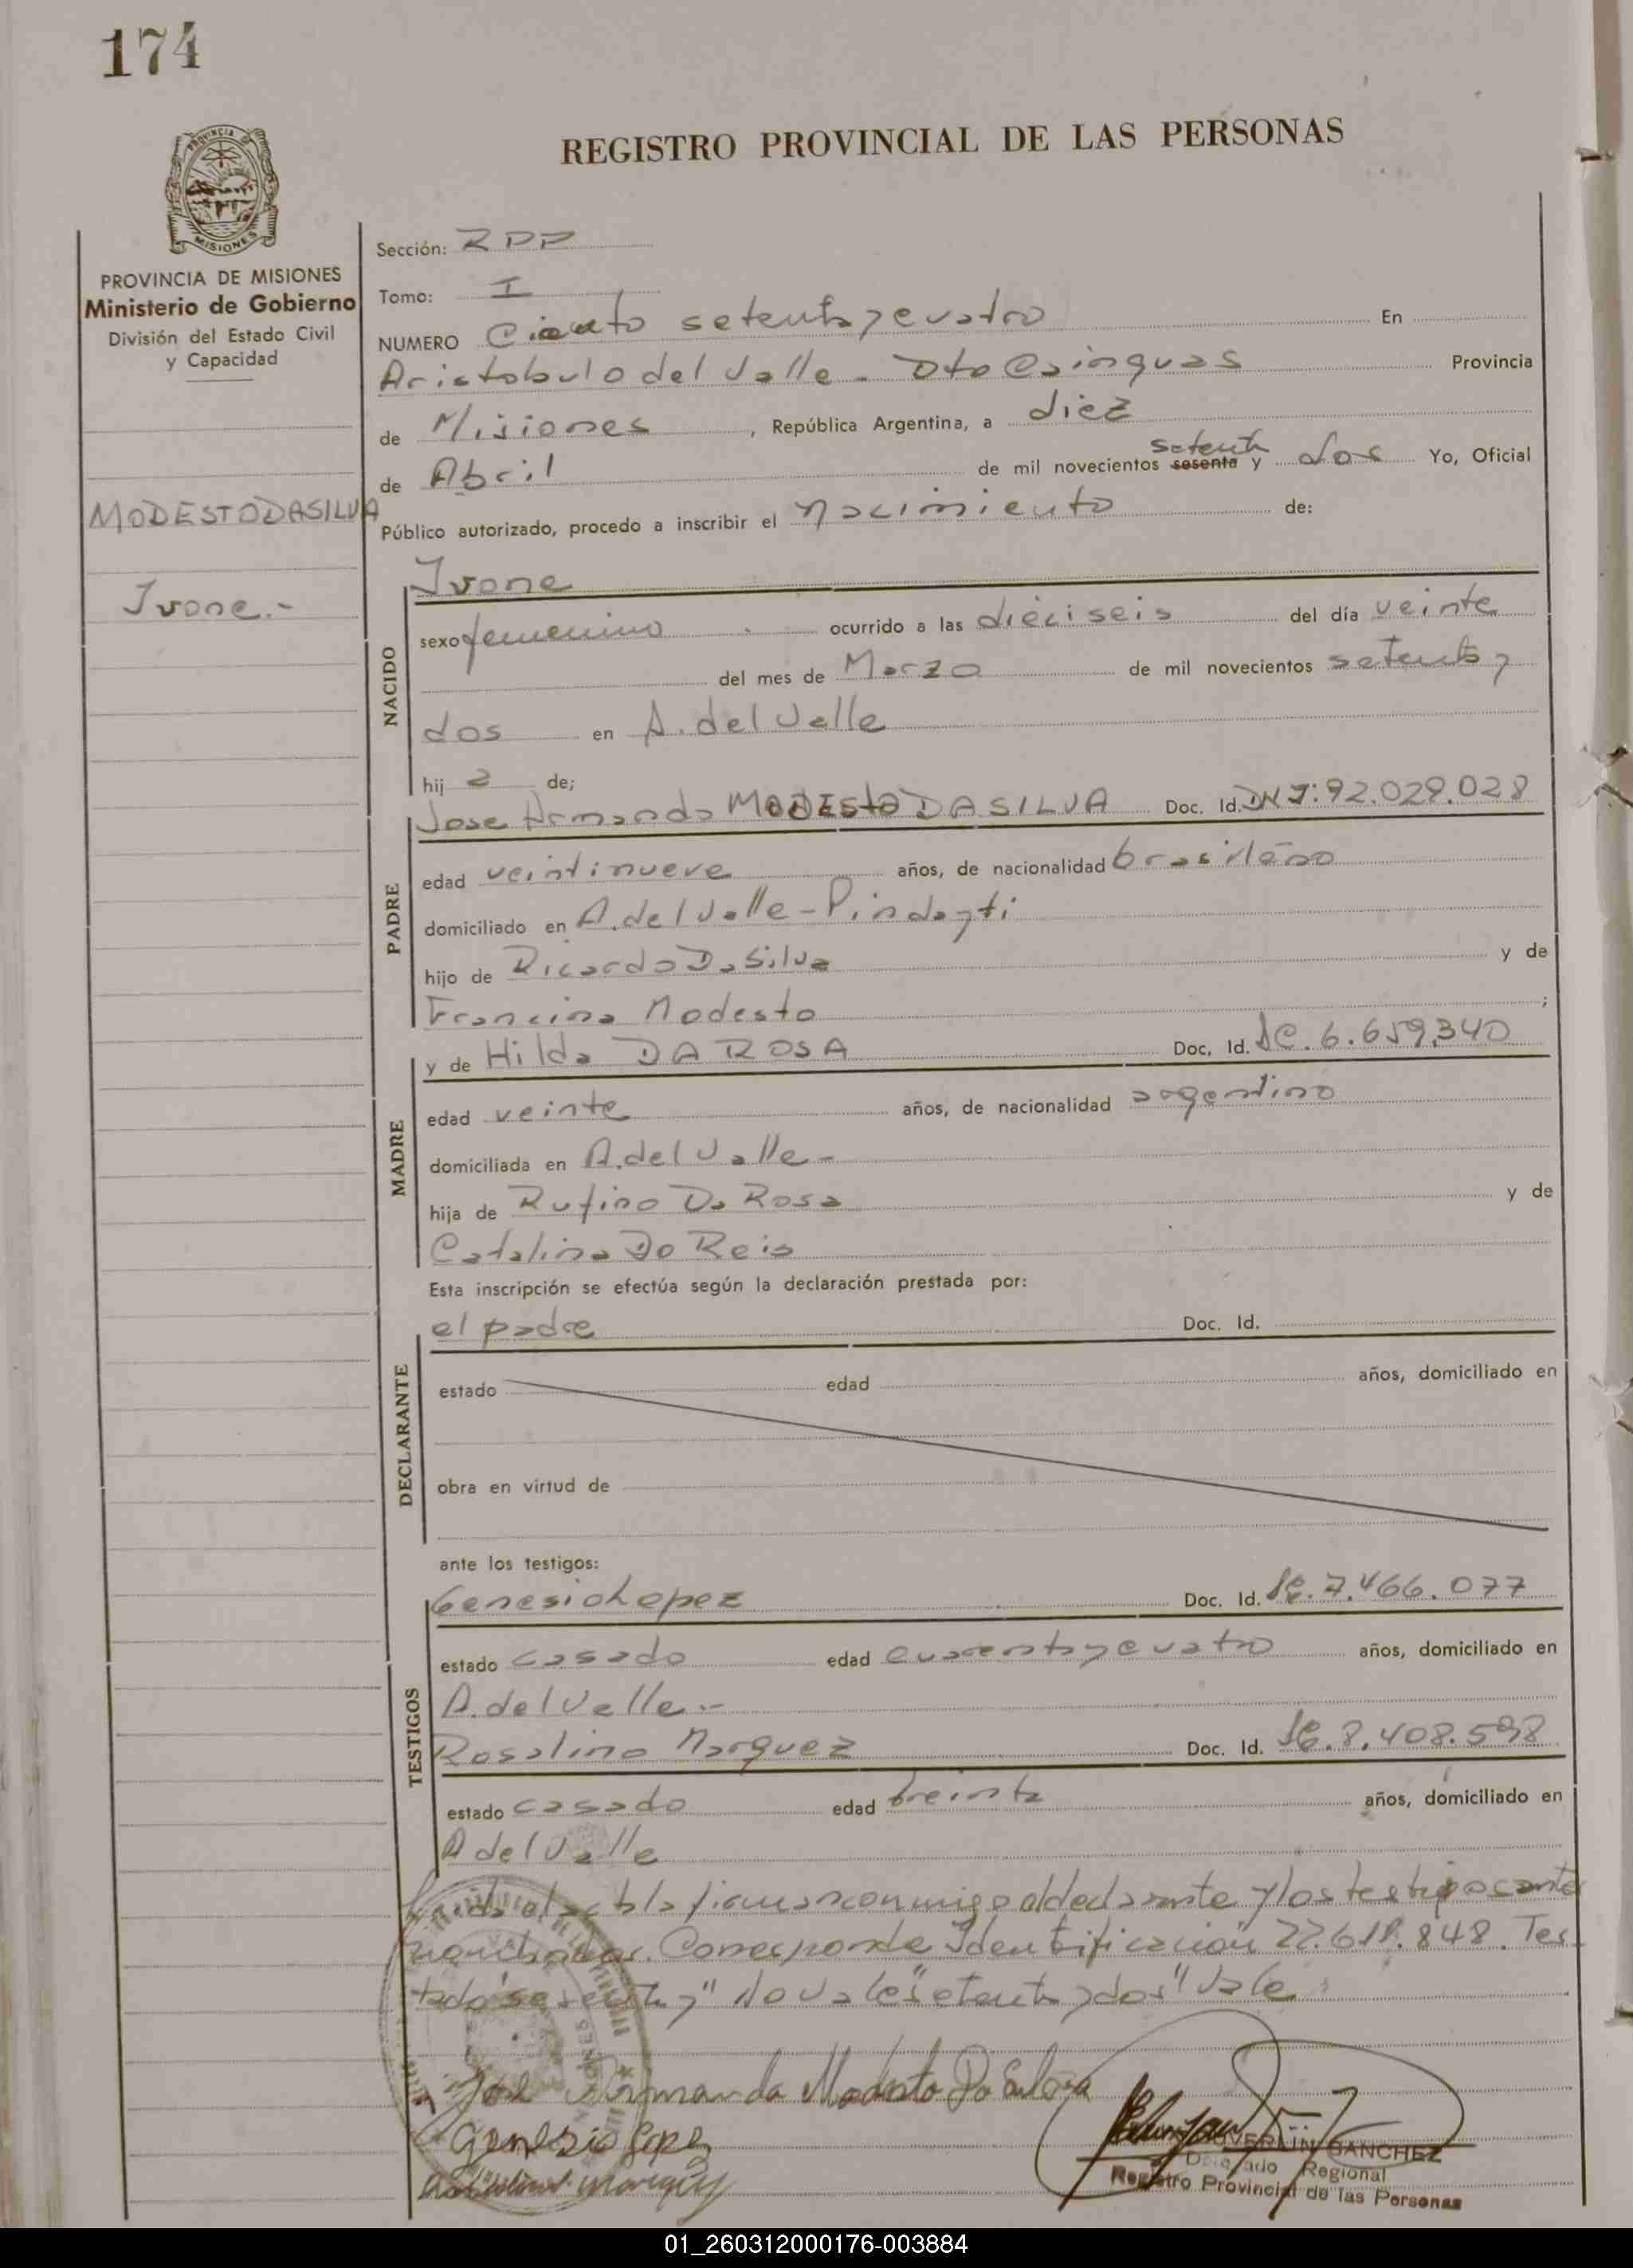 174
REGISTRO PROVINCIAL DE LAS PERSONAS
PROVINCIA
MISIONES
PROVINCIA DE MISIONES
Ministerio de Gobierno
División del Estado Civil
y Capacidad
MODESTO DASILVA
Ivone.-
Sección: RPP
Tomo: I
NUMERO Ciento setenta y cuatro En
Aristobulo del Valle - Dto Cainguas Provincia
de Misiones, República Argentina, a diez
setenta
de Abril de mil novecientos sesenta y dos Yo, Oficial
Público autorizado, procedo a inscribir el nacimiento de:
NACIDO
Ivone
sexo femenino ocurrido a las dieciseis del día veinte
del mes de Marzo de mil novecientos setenta y
dos en A. del Valle
hij a de;
PADRE
Jose Armando MODESTO DA SILVA Doc. Id. DNI: 92.029.028
edad veintinueve años, de nacionalidad brasilero
domiciliado en A. del Valle - Pindayti
hijo de Ricardo Da Silva y de
Francina Modesto ;
MADRE
y de Hilda DA ROSA Doc. Id. 6.659.340
edad veinte años, de nacionalidad argentina
domiciliada en A. del Valle -
hija de Rufino Da Rosa y de
Catalina Do Reis
Esta inscripción se efectúa según la declaración prestada por:
DECLARANTE
el padre Doc. Id.
estado edad años, domiciliado en
obra en virtud de
ante los testigos:
TESTIGOS
Genesio Lopez Doc. Id. 7.466.077
estado casado edad cuarenta y cuatro años, domiciliado en
A. del Valle.-
Rosalino Marquez Doc. Id. 8.408.598
estado casado edad treinta años, domiciliado en
A del Valle
Leida el acta la firman conmigo el declarante y los testigos ante
nombrados. Corresponde Identificación 22.618.848. Tes
tado "sesenta y" No vale "setenta y dos" Vale
José Armando Modesto Da Silva
Genesio Lopez
Marquez
SANCHEZ
Delegado Regional
Registro Provincial de las Personas
01_260312000176-003884